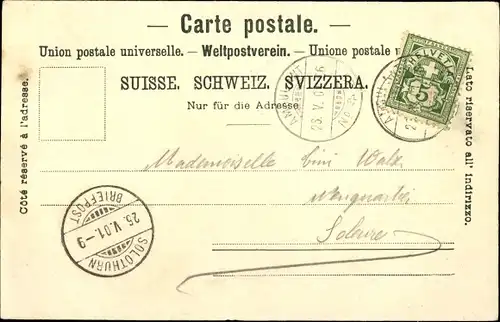 Carte postale.
Union postale universelle. — Weltpostverein. — Unione postale u
SUISSE. SCHWEIZ. SVIZZERA.
Nur für die Adresse
Côté réservé à l'adresse.
Lato riservato all' indirizzo.
HELVETIA
5
23.V.01
Mademoiselle
Soleure
SOLOTHURN
26.V.01.-9
BRIEFPOST